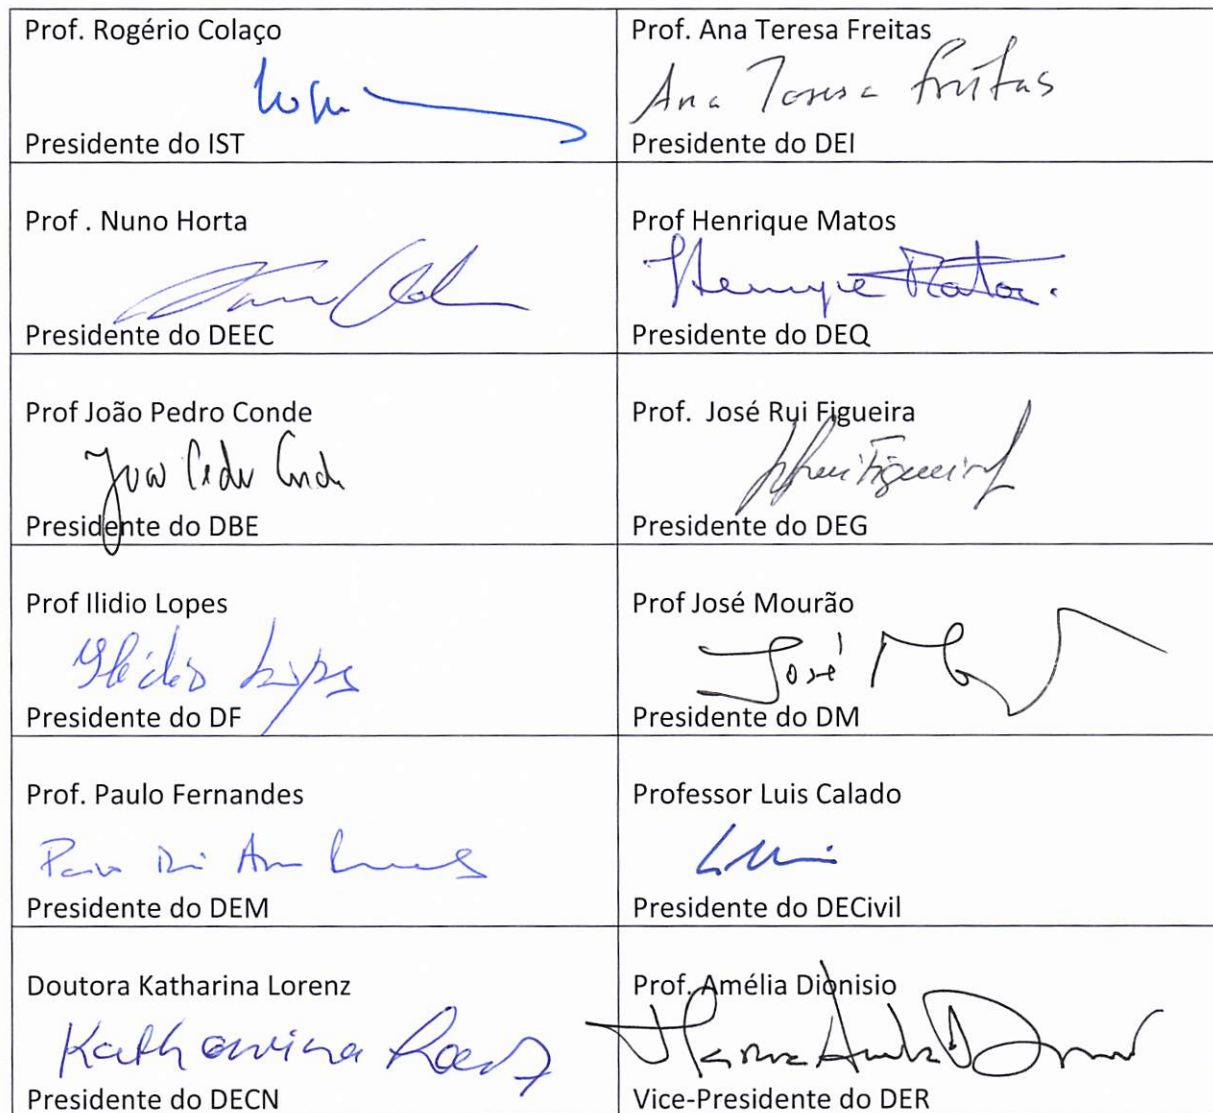 Prof. Rogério Colaço
Presidente do IST
Prof. Ana Teresa Freitas
Ana Teresa Freitas
Presidente do DEI
Prof . Nuno Horta
Presidente do DEEC
Prof Henrique Matos
Henrique Matos.
Presidente do DEQ
Prof João Pedro Conde
João Pedro Conde
Presidente do DBE
Prof. José Rui Figueira
Rui Figueira
Presidente do DEG
Prof Ilidio Lopes
Ilídio Lopes
Presidente do DF
Prof José Mourão
José
Presidente do DM
Prof. Paulo Fernandes
Presidente do DEM
Professor Luis Calado
Presidente do DECivil
Doutora Katharina Lorenz
Katharina Lorenz
Presidente do DECN
Prof. Amélia Dionisio
Presidente do DER